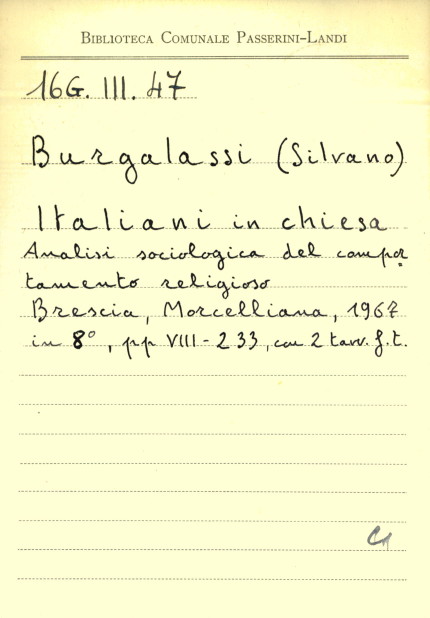 BIBLIOTECA COMUNALE PASSERINI-LANDI
16G. III. 47
Burgalassi (Silvano)
Italiani in chiesa
Analisi sociologica del compor
tamento religioso
Brescia, Morcelliana, 1967
in 8°, pp VIII-233, con 2 tavv. f.t.